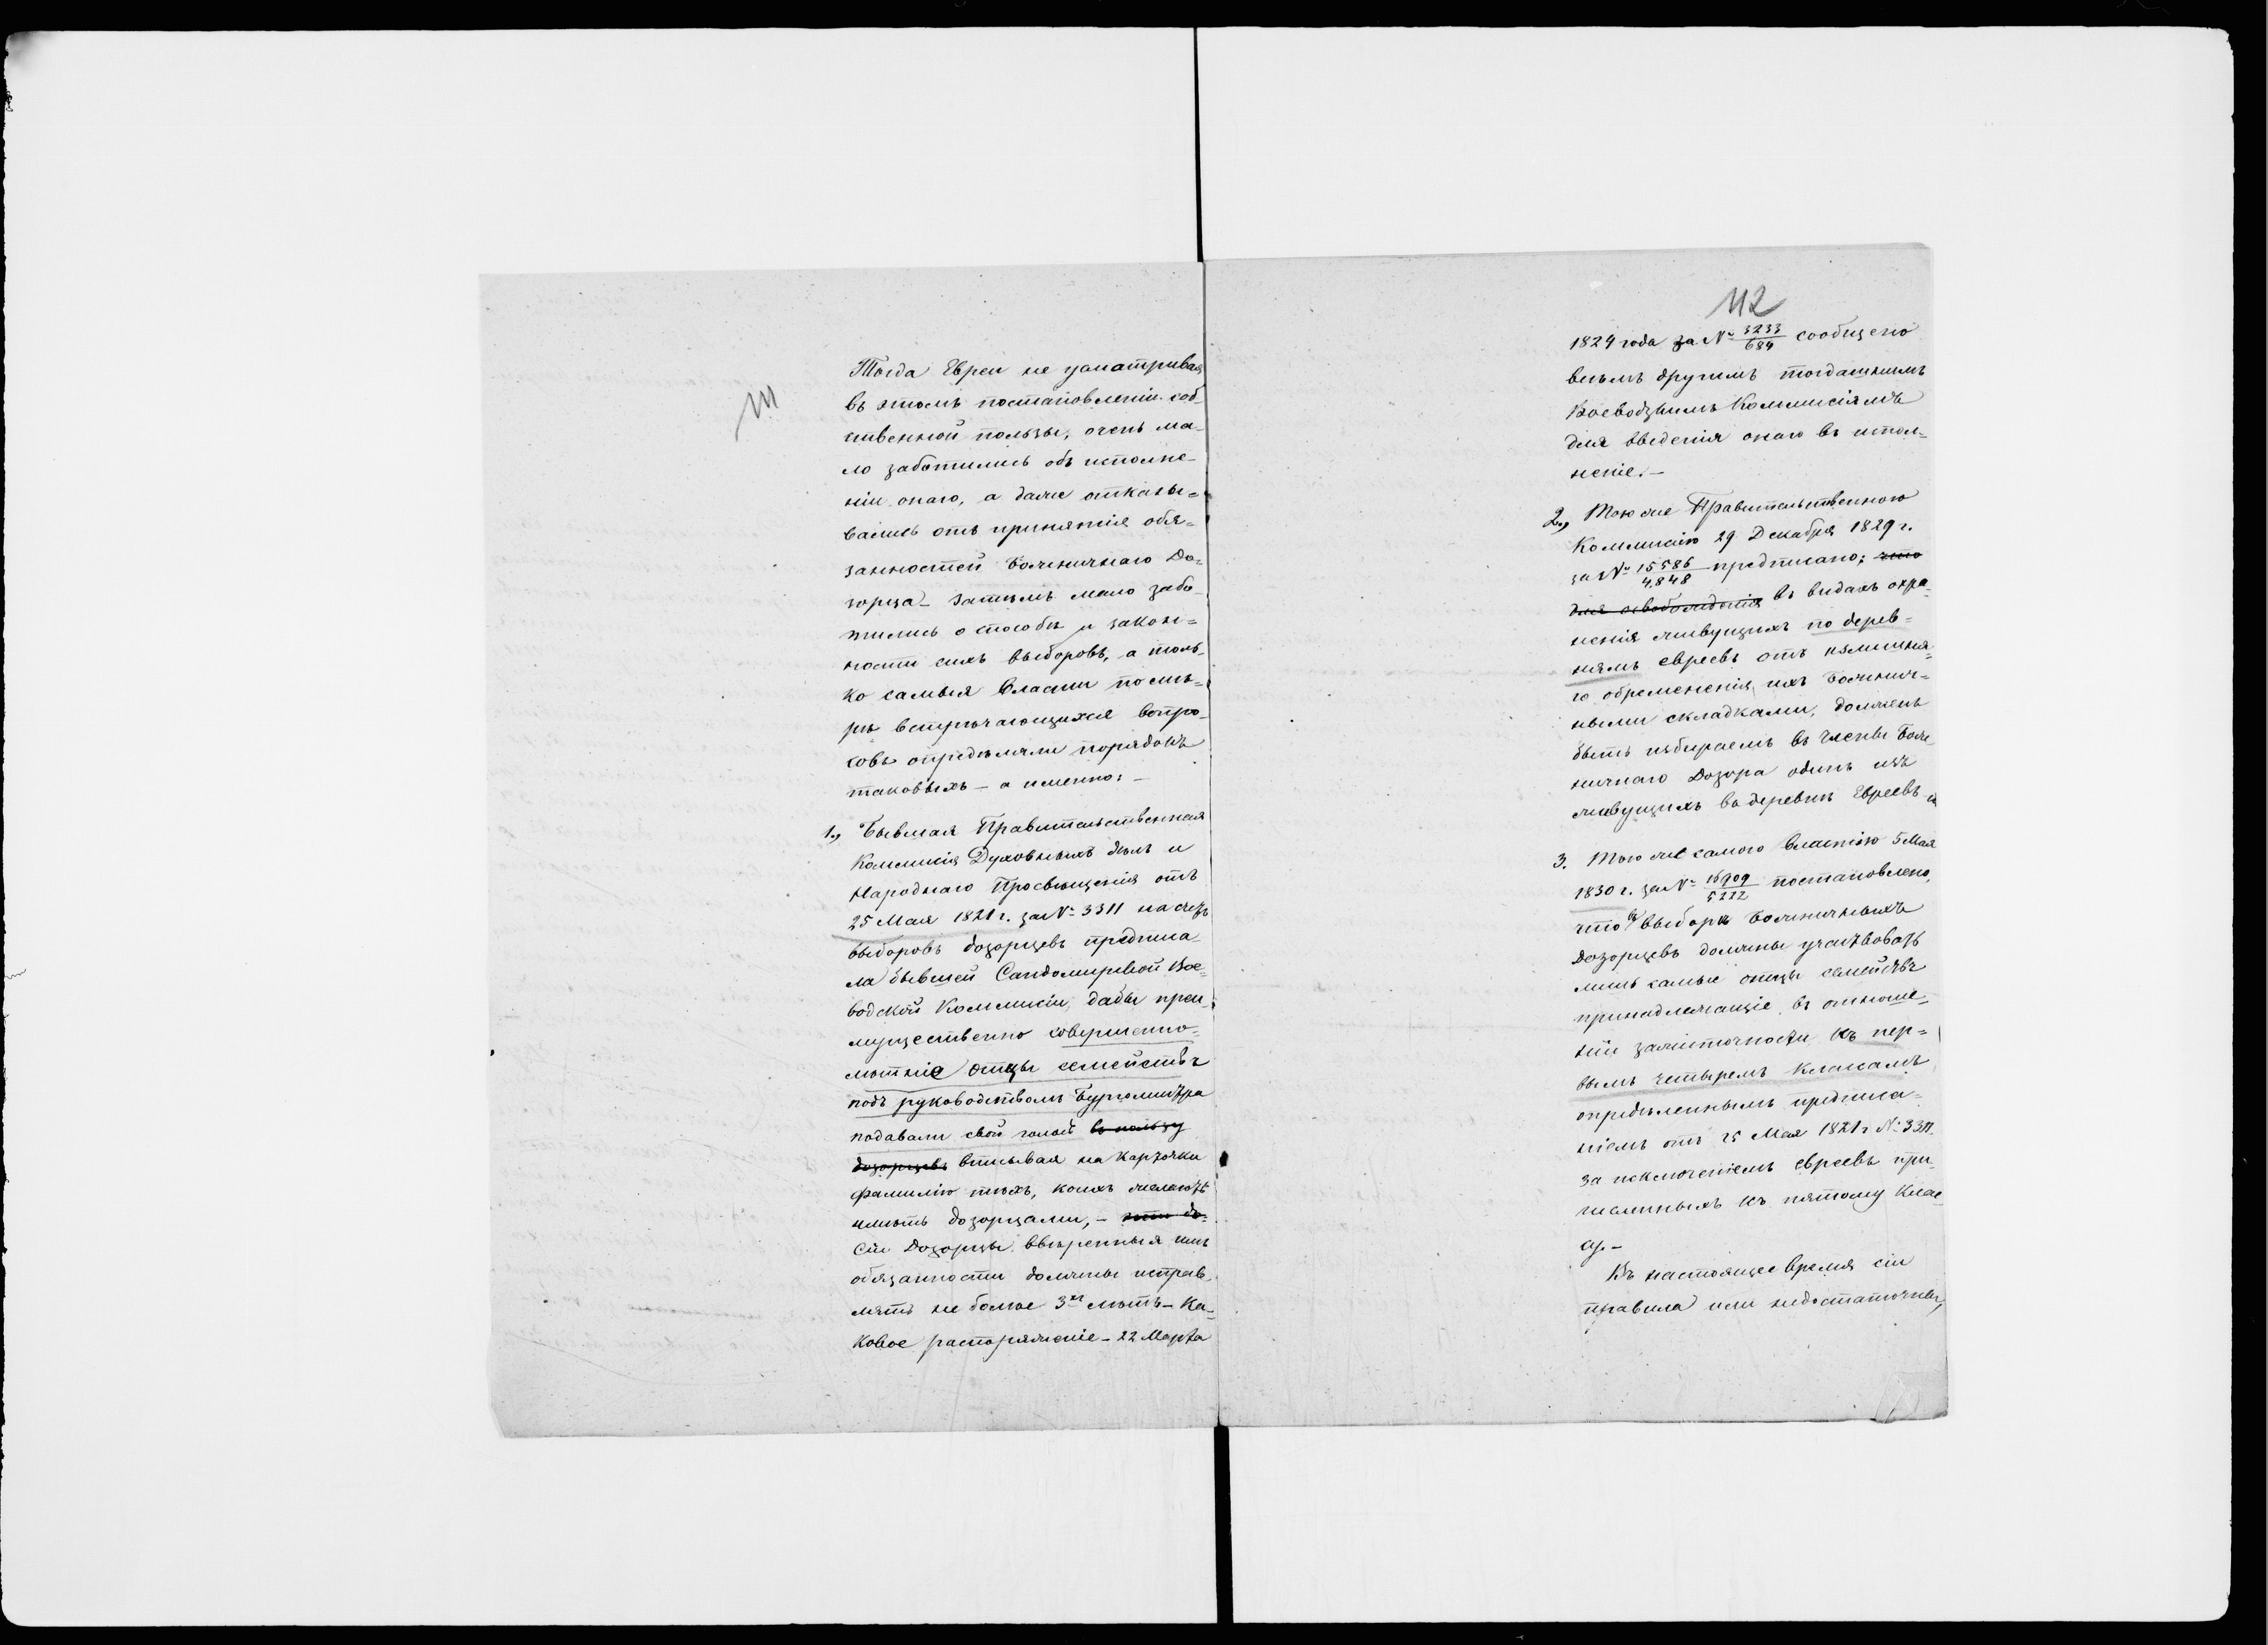 111
Тогда Евреи не усматривая
въ этомъ постановленіи соб-
ственной пользы, очень ма-
ло заботились объ исполне-
ніи онаго, а даже отказы-
вались отъ принятія обя-
занностей Божничнаго До-
зорца – Затѣмъ мало забо-
тились о способѣ и закон-
ности сихъ выборовъ, а толь-
ко самыя власти по мѣ-
рѣ встрѣчающихся вопро-
совъ опредѣляли порядокъ
таковыхъ – а именно: –
1., Бывшая Правительственная
Коммисія Духовныхъ дѣлъ и
Народнаго Просвѣщенія отъ
25 Мая 1821 г. за № 3311 на счетъ
выборовъ дозорцевъ предписа-
ла бывшей Сандомирской Вое-
водской Коммисіи, дабы преи-
мущественно совершенно-
лѣтніе отцы семействъ
подъ руководствомъ Бургомистра
подавали свой голосъ въ пользу
дозорцевъ вписывая на карточки
фамилію тѣхъ, коихъ желаютъ
имѣть дозорцами, – эти до-
Сіи Дозорцы ввѣренныя имъ
обязанности должны исправ-
лять не болѣе 3хъ лѣтъ – Ка-
ковое распоряженіе – 22 Марта
112
1824 года за № 3233/684 сообщено
всѣмъ другимъ тогдашнимъ
Воеводзкимъ Коммисіямъ
для введенія онаго въ испол-
неніе. –
2., Тою же Правительственною
Коммисіею 29 Декабря 1829 г.
за № 15586/4848 предписано; что
для освобожденія въ видахъ охра-
ненія живущихъ по дерев-
нямъ евреевъ отъ излишня-
го обремененія ихъ божнич-
ными складками, долженъ
быть избираемъ въ Члены Бож-
ничнаго Дозора одинъ изъ
живущихъ въ деревнѣ Евреевъ
3. Тою же самою властію 5 Мая
1830 г. за № 16909/5222 постановлено,
что въ выборѣ Божничныхъ
Дозорцевъ должны участвовать
лишь самые отцы семействъ
принадлежащіе, въ отноше-
ніи зажиточности къ пер-
вымъ четыремъ классамъ
опредѣленнымъ предписа-
ніемъ отъ 25 Мая 1821 г № 3311.
за исключеніемъ евреевъ при-
численныхъ къ пятому клас-
су. –
Въ настоящее время сіи
правила или недостаточны,